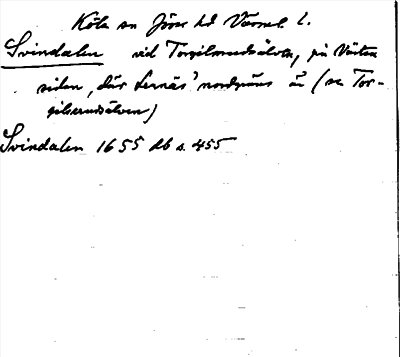 Köla sn Jösse hd Värml. l.
Svindalen vid Torgilsrudsälven, på Västra
sidan, där Lernäs' nordgräns är (se Tor-
gilsrudsälven)
Svindalen 1655 db s. 455